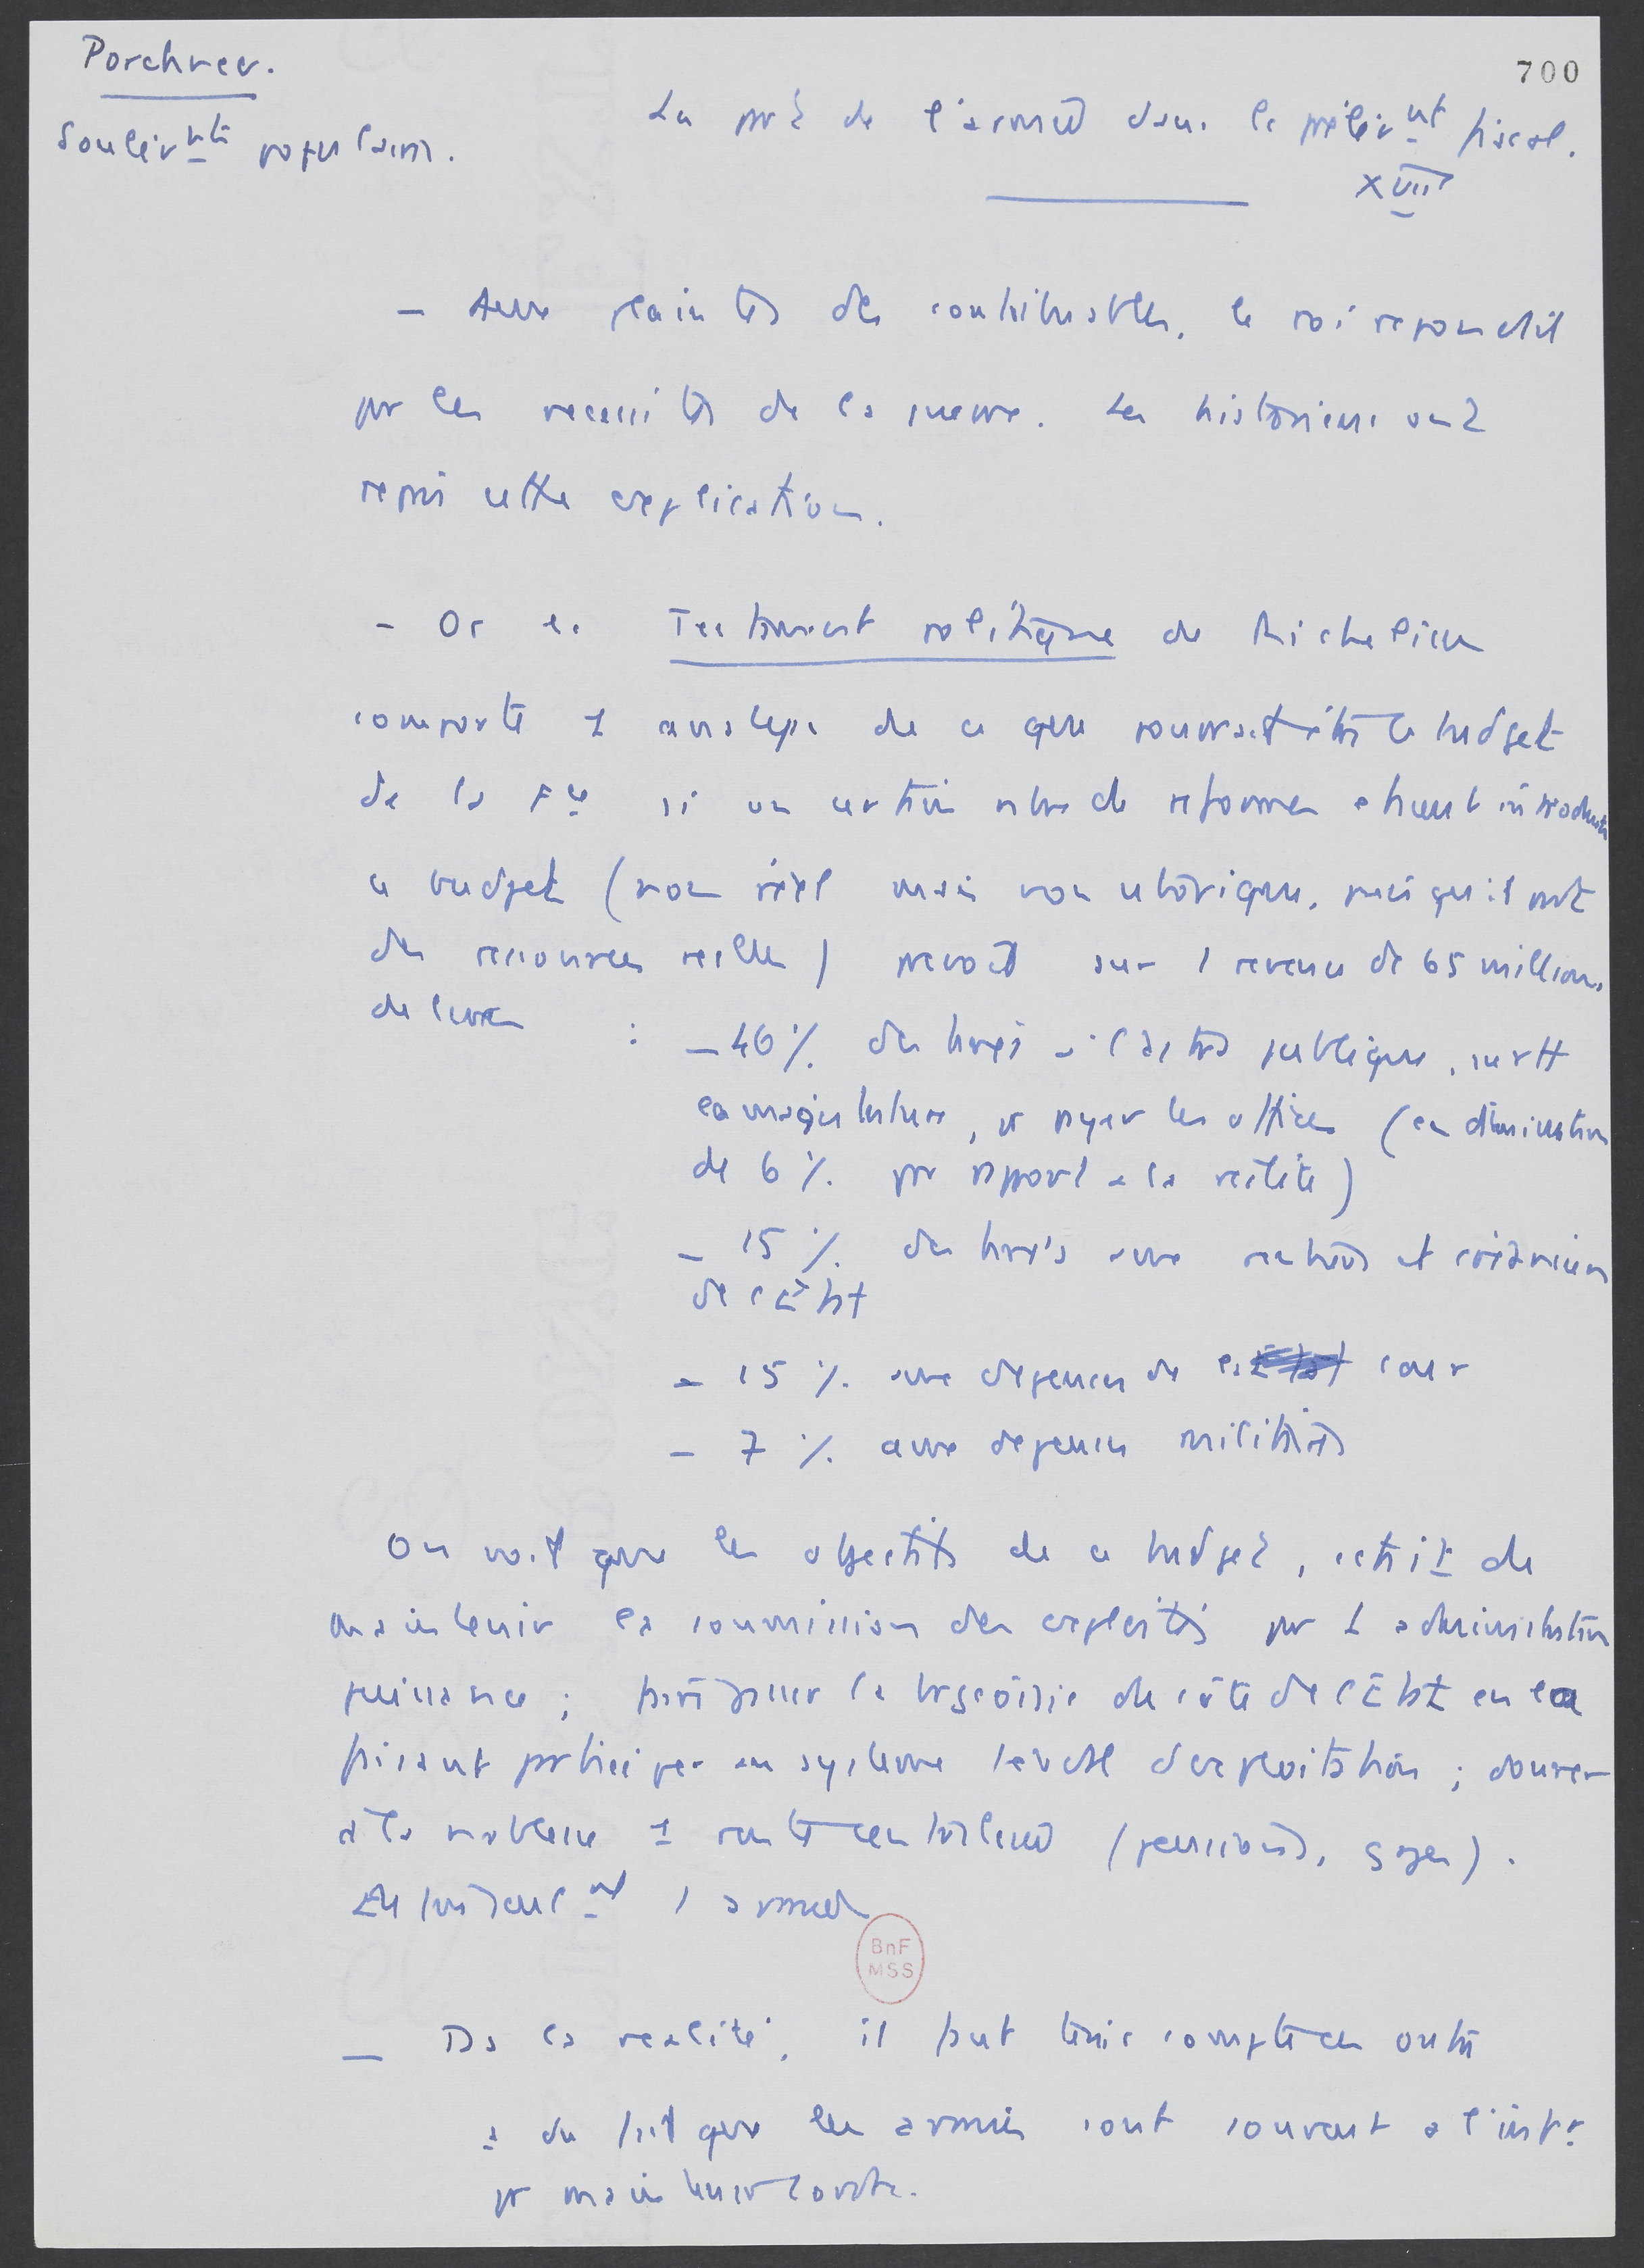 Porchnev.
Soulèvts populaires.
700
La part de l'armée dans le prélèvnt fiscal.
XVII
— Aux plaintes des contribuables, le roi répondait
par les nécessités de la guerre. Les historiens ont
repris cette explication.
- Or le Testament politique de Richelieu
comporte 1 analyse de ce que pourrait être le budget
de la Fce si un certain nbre de réformes étaient introduites
ce budget (non réel mais non utopique, puisqu'il part
des ressources réelles) prévoit sur 1 revenu de 65 millions
de livres : - 46 % des frais à l'adm publique, surtt
la magistrature, pr payer les offices (en diminution
de 6 % par rapport à la réalité)
- 15 % des frais aux rentiers et créanciers
de l'État
- 15 % aux dépenses de la cour
- 7 % aux dépenses militaires
On voit que les objectifs de ce budget, était de
maintenir la soumission des exploités par 1 administration
puissance ; faire passer la bourgeoisie du côté de l'État en la
faisant participer au système féodal d'exploitation ; donner
à la noblesse 1 rente centralisée (pensions, gages).
Et seulent l'armée
— Ds la réalité, il faut tenir compte en outre
a du fait que les armées sont souvent à l'intr
pr maintenir l'ordre.
BnF
MSS